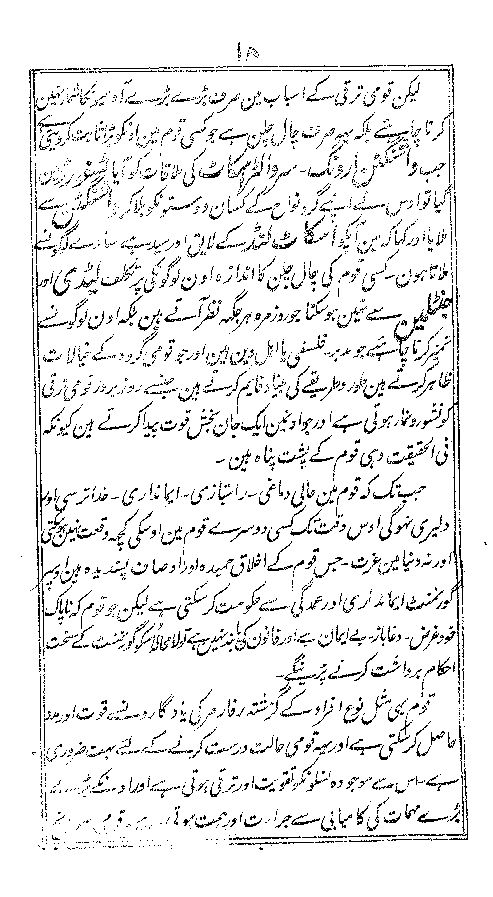 ۱۵
لیکن قومی ترقی کے اسباب مین صرف بڑے بڑے آدمیونکا شمار نہین
کرنا چاہیئے بلکہ یہہ صرف چال چلن ہے جو کسی قوم مین اونکو بڑا ثابت کرویتی ہے
جب واشنگٹن ارونگ - سر والٹر سکاٹ کی ملاقات کو آیا
گیا تو اوس نے اپنے گرد نواح کے کسان دوستونکو بلا کر واشنگٹن سے
ملایا اور کہا کہ مین آپکو اسکاٹ لنڈ کے لایق اور سیدہے سادے لوگونسے
ملاتا ہون - کسی قوم کی چال چلن کا اندازہ اون لوگونکی پر تکلف لیڈی اور
جنٹلمین سے نہین ہو سکتا جو روز مرہ ہر جگہہ نظر آتے ہین بلکہ اون لوگونسے
تمیز کرنا چاہئے جو مدبر - فلسفی یا اہل دین ہین اور جو قومی گروہ کے خیالات
ظاہر کرتے ہین اور طریقے کی بنیاد قایم کرتے ہین - جنسے روز بروز قومی ترقی
کو نشو و نما ہوتی ہے اور جو اونین ایک جان بخش قوت پیدا کرتے ہین کیونکہ
فی الحقیقت وہی قوم کے پشت پناہ ہین -
جب تک کہ قوم مین عالی دماغی - راستبازی - ایمانداری - خدا ترسی اور
دلیری نہوگی اوس وقت تک کسی دوسرے قوم مین اوسکی کچہہ وقعت نہین ہو سکتی
اور نہ دنیا مین عزت - جس قوم کے اخلاق حمیدہ اور اوصاف پسندیدہ ہین اوسپر
گورنمنٹ ایمانداری اور عمدگی سے حکومت کر سکتی ہے لیکن جو قوم کہ ناپاک
خود غرض - دغا باز - بے ایمان ہے اور قانون کی پابند نہین ہے تو لا محالا اوسکو گورنمنٹ کے سخت
احکام برداشت کرنے پڑینگے -
قوم بہی مثل نوع افراد کے گزشتہ رفارمر کی یادگارونسے قوت اور مدد
حاصل کر سکتی ہے اور یہہ قومی حالت درست کرنے کے لئے بہت ضروری
ہے اس سے موجودہ نسلونکو تقویت اور ترقی ہوتی ہے اور اونکے بڑے
بڑے مہمات کی کامیابی سے جرارت اور ہمت ہوتی قوم